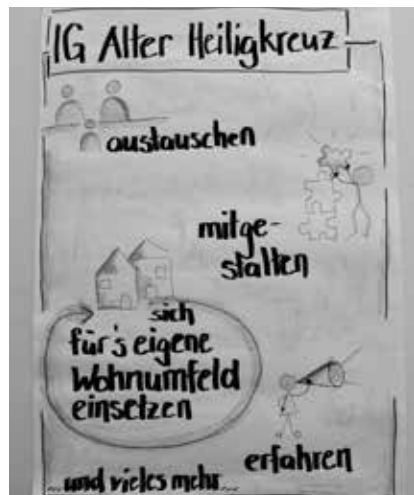 IG Alter Heiligkreuz
austauschen
mitge-
stalten
sich
für's eigene
Wohnumfeld
einsetzen
erfahren
...und vieles mehr...